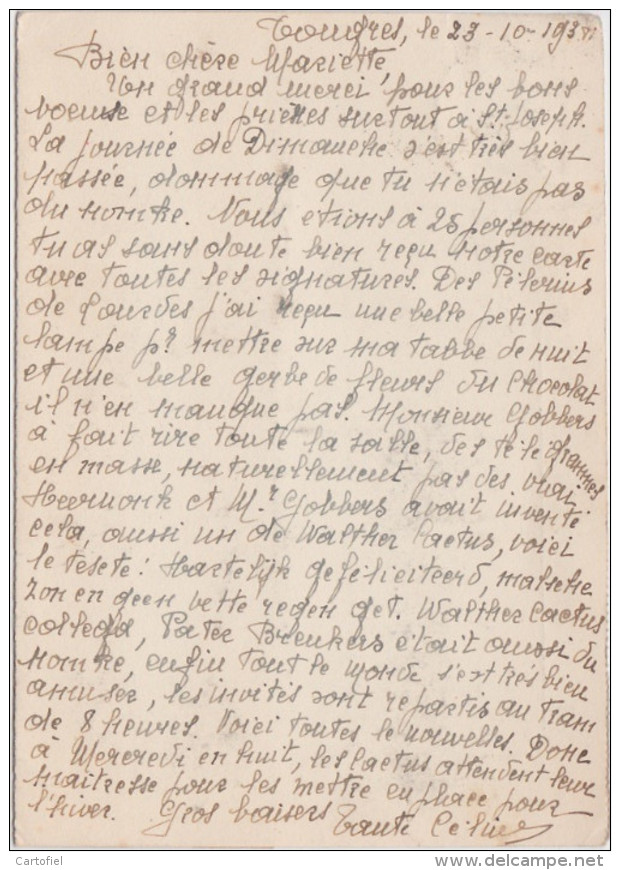 Tongres, le 23-10-193
Bien chère Mariette,
Un grand merci, pour les bons
voeuse et les prières surtout à St Joseph.
La journée de Dimanche s'est très bien
passée, dommage que tu n'étais pas
du nombre. Nous étions à 25 personnes
tu as sans doute bien reçu notre carte
avec toutes les signatures. Des Pèlerins
de Lourdes j'ai reçu une belle petite
lampe pr mettre sur ma tabbe de nuit
et une belle gerbe de fleurs du chocolat
il n'en manque pas. Monsieur Gobbers
à fait rire toute la salle, des télégrammes
en masse, naturellement pas des vrai
et Mr Gobbers avait inventé
cela, aussi un de Walther Cactus, voici
le texte! Hartelijk gefeliciteerd, malsche
zon en geen vette regen get. Walther Cactus
collega, Pater Breukers était aussi du
nombre, enfin tout le monde s'est très bien
amuser, les invités sont repartis au tram
de 8 heures. Voici toutes le nouvelles. Donc
à Mercredi en huit, les cactus attendent leur
maitresse pour les mettre en place pour
l'hiver. Gros baisers Tante Céline
Cartofiel
www.delcampe.net